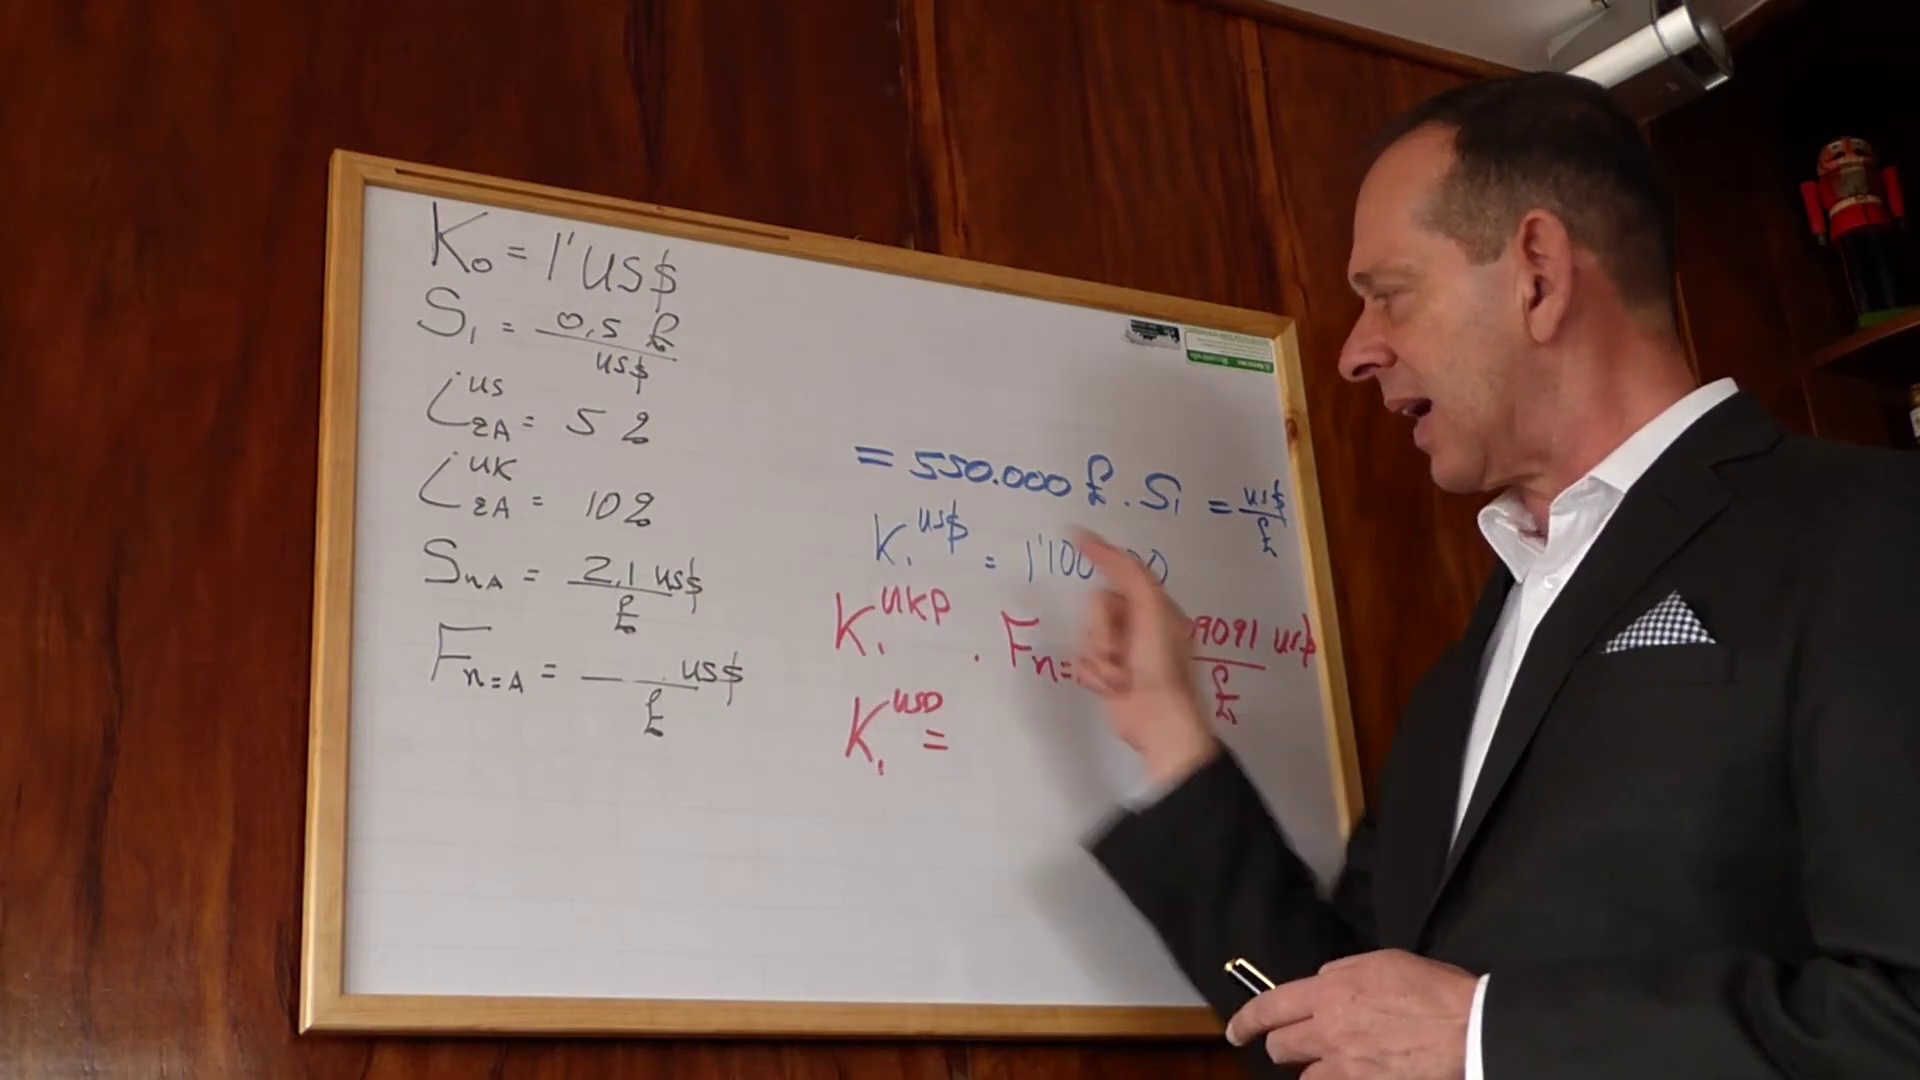 K₀ = 1' US$
S₁ = 0,5 £ / US$
i US 2A = 5 %
i UK 2A = 10 %
SnA = 2,1 US$ / £
Fn=A = __ . US$ / £
= 550.000 £ . S₁ = US$ / £
K₁ US$ = 1'100
K₁ UKP . Fn= 9091 US$ / £
K₁ USD =